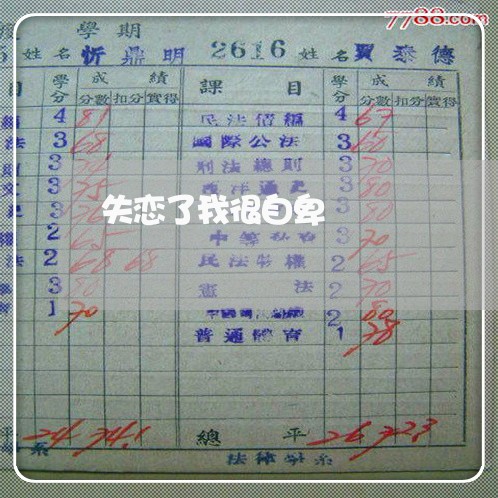 7788.com
學期
姓名 忻鼎明 2616 姓名 賈泰德
目 學分 成績 課目 學分 成績
分數 扣分 實得 分數 扣分 實得
4 81 民法債編 4 67
法 3 68 國際公法 3 60
3 刑法總則 3 70
3 75 西洋通史 3 80
3 3 80
失恋了我很自卑
2 65 3 70
法 2 68 68 民法物權 2 65
3 80 憲法 2 70
1 70 2 80
普通體育 1 78
平 24 74.1 總平 26 72.3
系 法律學系